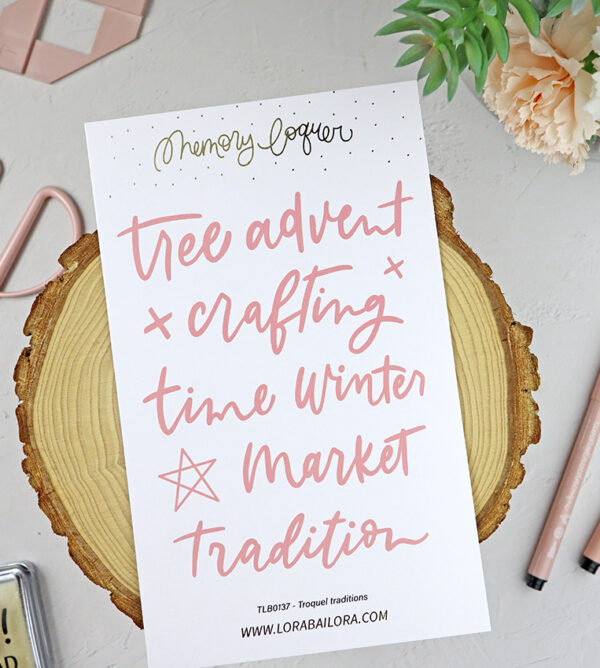 Memory Loquer
tree advent
crafting
time Winter
Market
Tradition
TLB0137 - Troquel traditions
WWW.LORABAILORA.COM